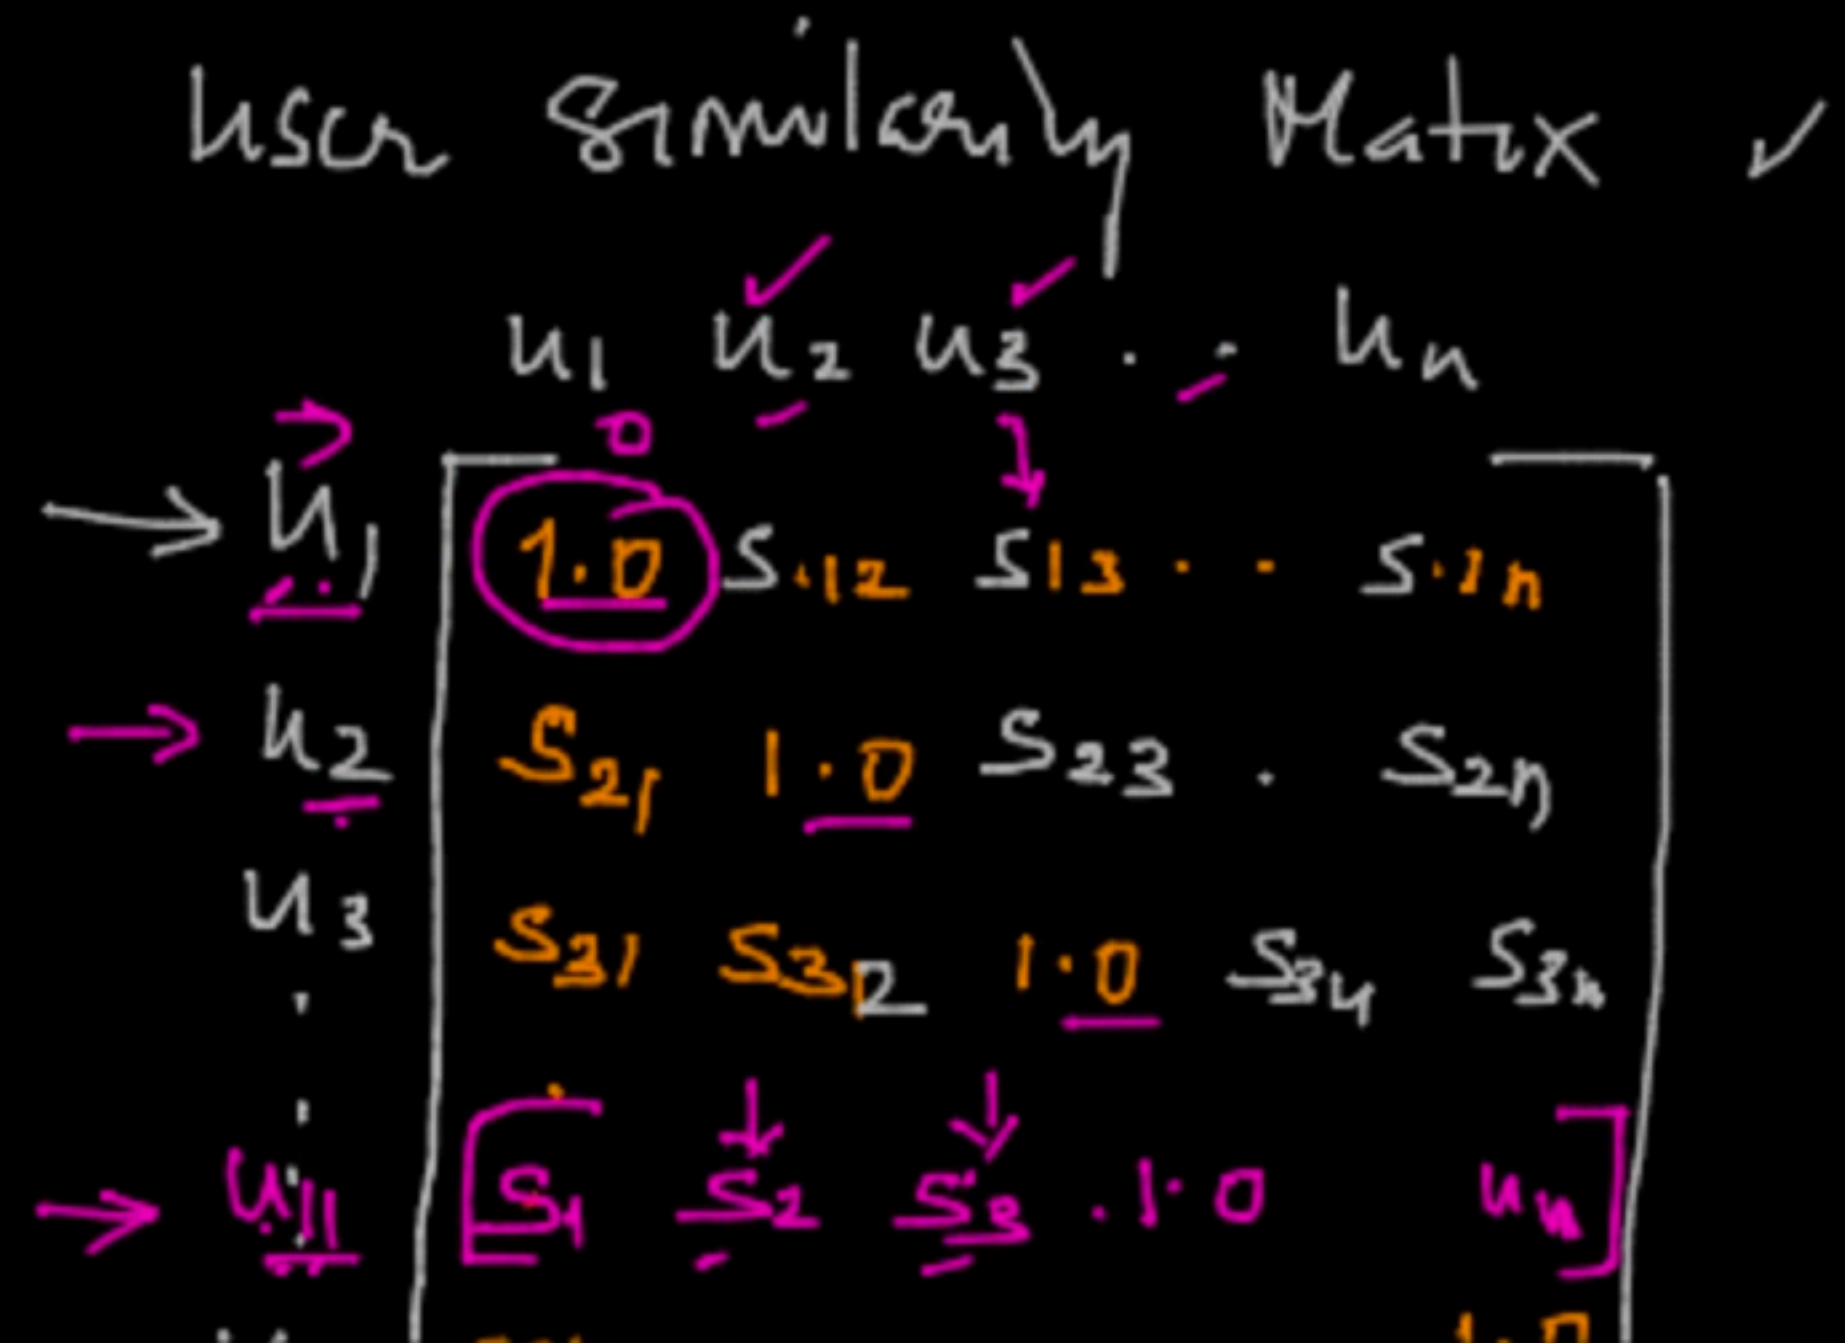 User Similarity Matrix ✓
u1 u2 u3 . . un
u1 1.0 S12 S13 . . S1n
u2 S21 1.0 S23 . S2n
u3 S31 S32 1.0 S34 S3n
u11 S1 S2 S3 . 1.0 un
1.0